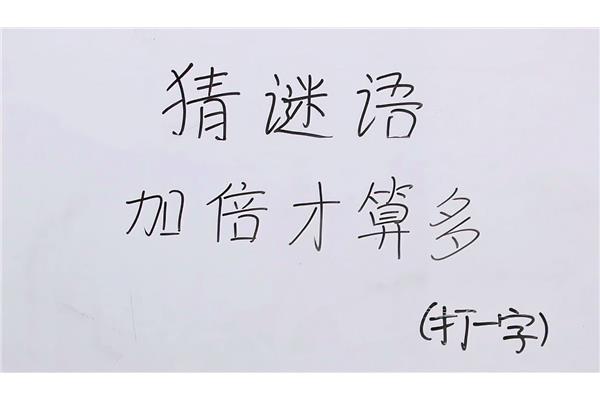 猜谜语
加倍才算多
(打一字)